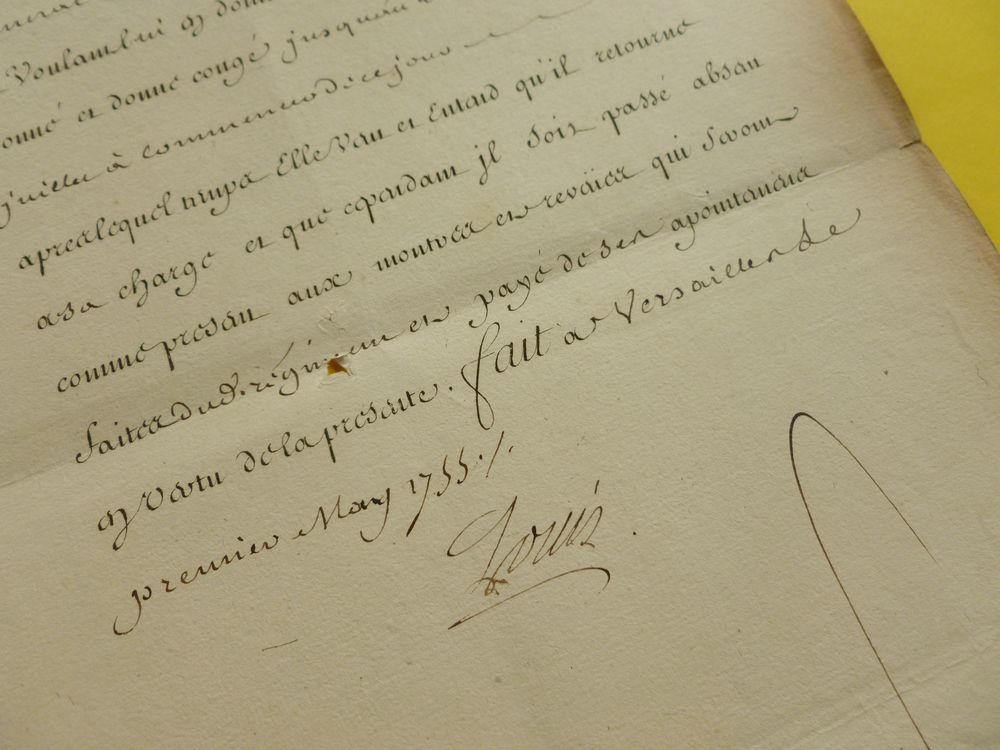 donné et donne congé jusqu'au
juillet à commencer de ce jour
apres lequel temps Elle Veut et Entend qu'il retourne
a sa charge et que cependant jl soit passé absent
comme present aux montres et reveües qui seront
faites dud. régiment et payé de ses apointemens
en vertu de la presente. fait a Versailles le
premier May 1755 ./.
Louis.